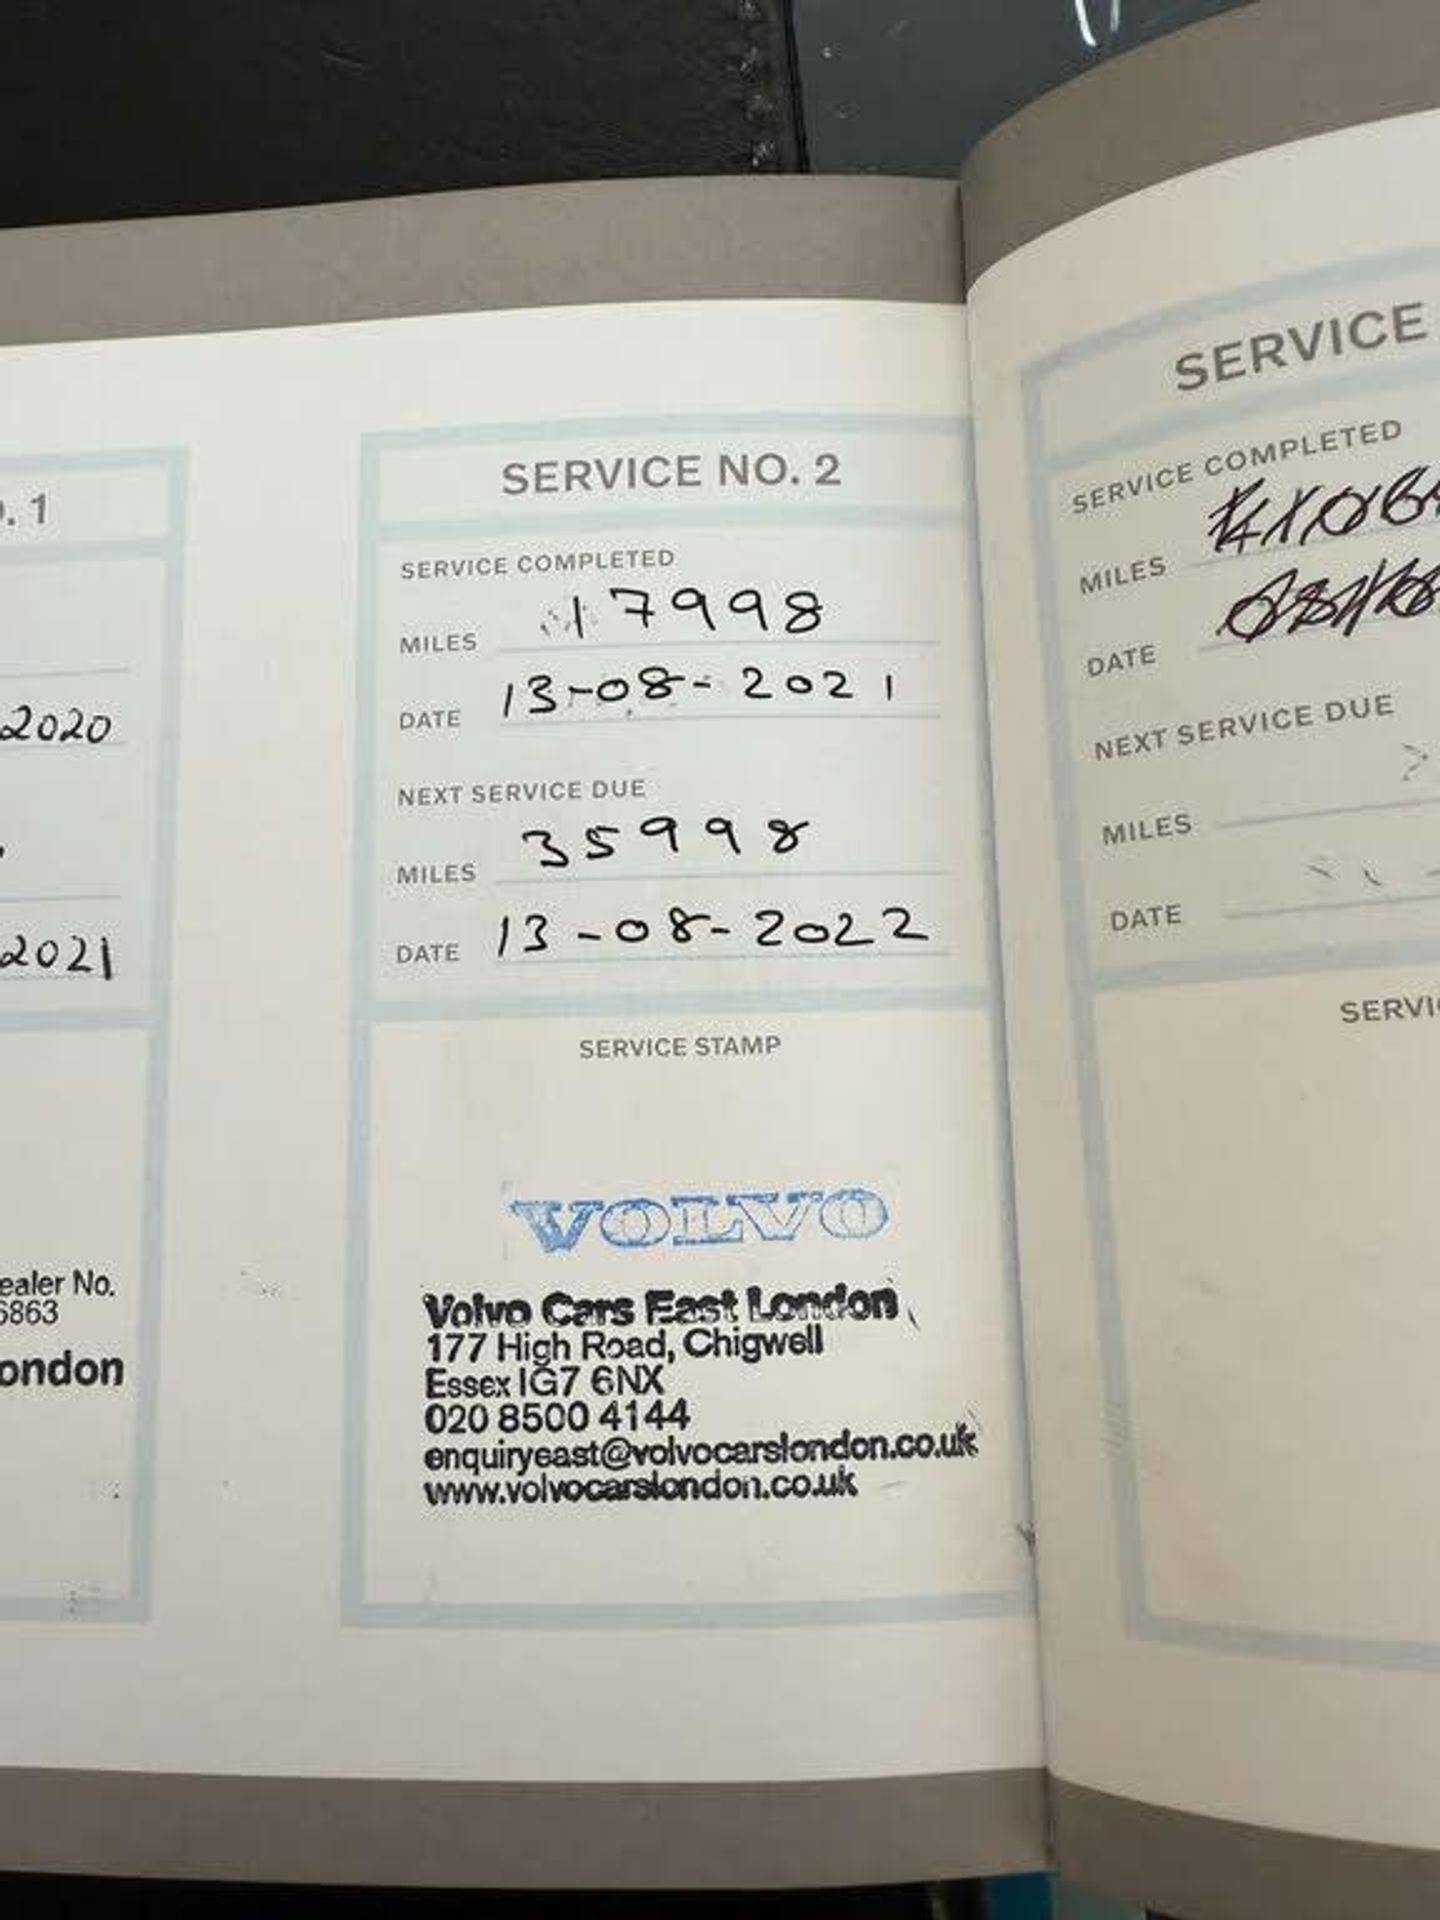 . 1
2020
2021
ealer No.
6863
ondon
SERVICE NO. 2
SERVICE COMPLETED
MILES 17998
DATE 13-08-2021
NEXT SERVICE DUE
MILES 35998
DATE 13-08-2022
SERVICE STAMP
VOLVO
Volvo Cars East London
177 High Road, Chigwell
Essex IG7 6NX
020 8500 4144
enquiryeast@volvocarslondon.co.uk
www.volvocarslondon.co.uk
SERVICE
SERVICE COMPLETED
MILES
DATE
NEXT SERVICE DUE
MILES
DATE
SERVI